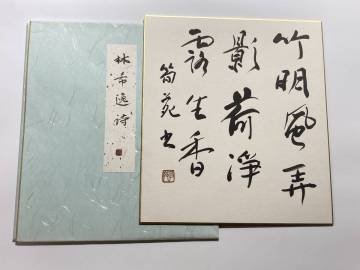 竹明風弄
影荷淨
露生香
筍苑书
林希逸诗